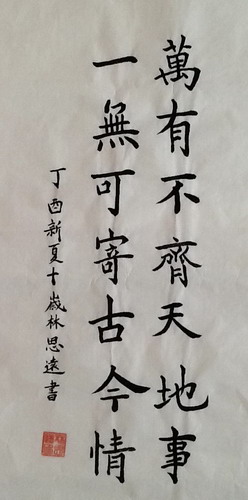 萬有不齊天地事
一無可寄古今情
丁酉新夏十歲林思遠書